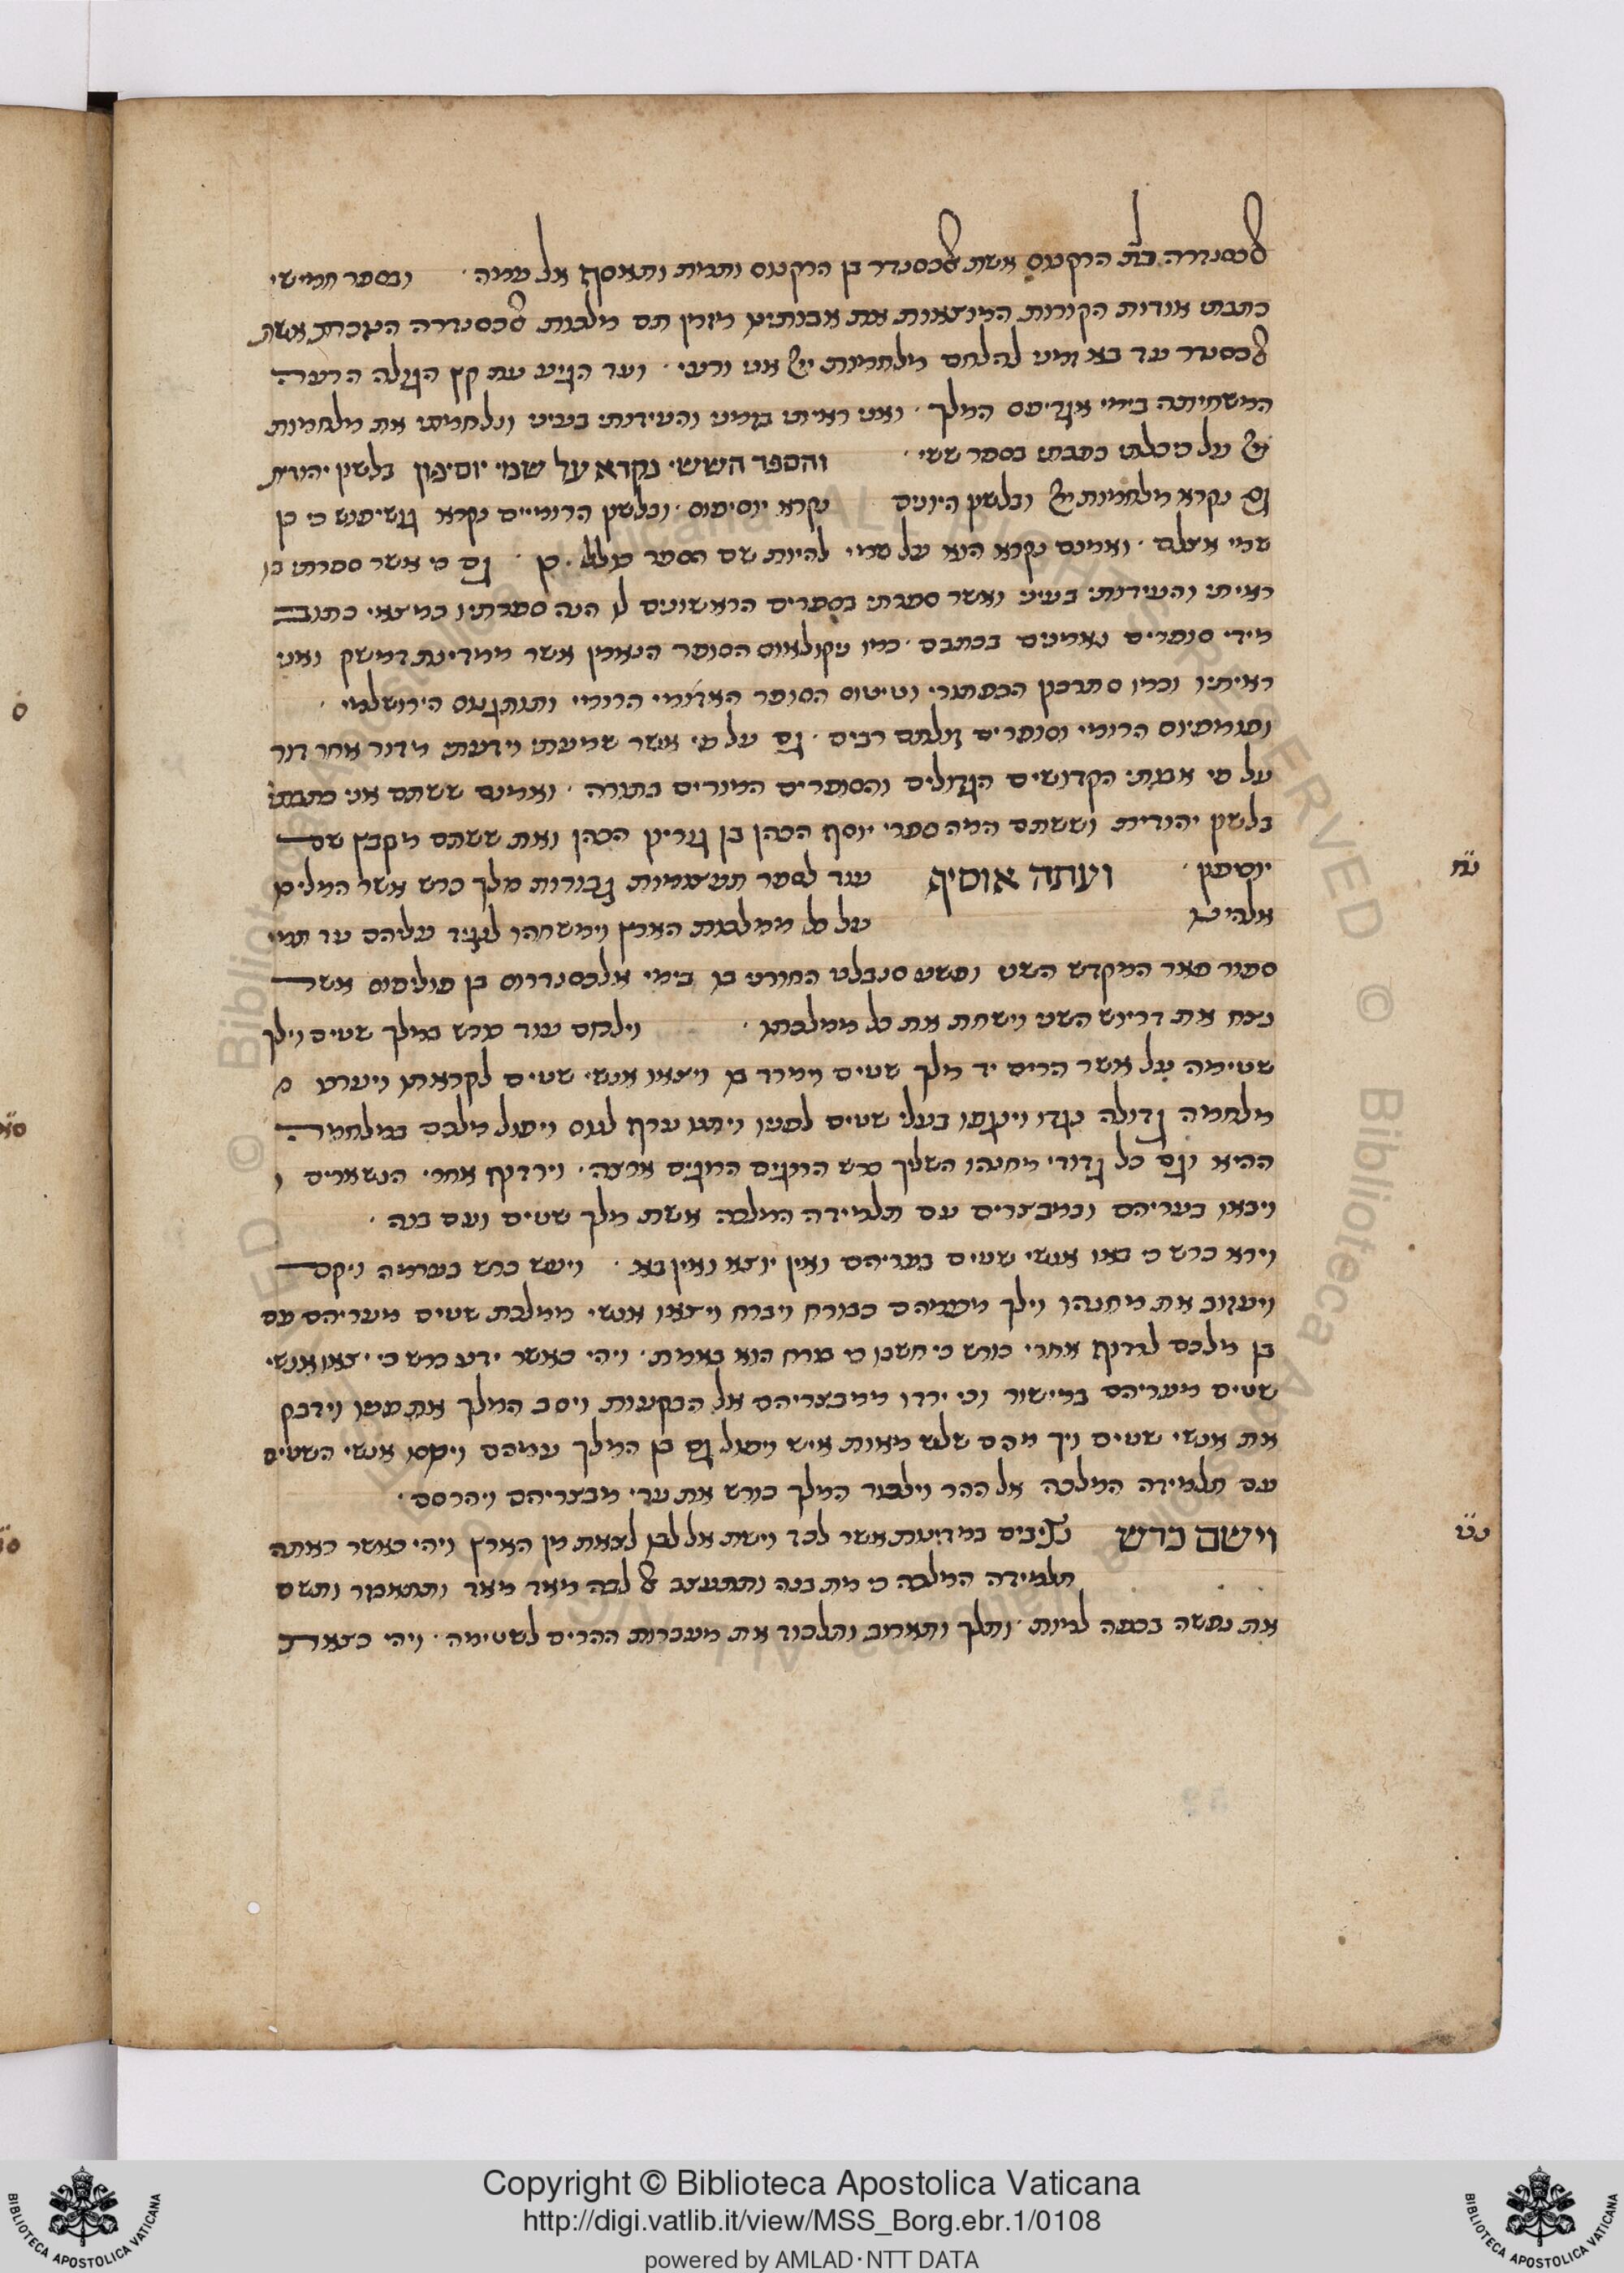 אלכסנדרה בת הרקנוס אשת אלכסנדר בן הרקנוס ותמת ותאסף אל עמיה ׳ ובספר חמישי
כתבתי אודות הקורות המוצאות את אבותינו מזמן תם מלכות אלכסנדרה הנזכרת אשת
אלכסנדר עד בא זמני להלחם מלחמות ייי אני ורעי ׳ ועד הגיע עת קץ הגולה הרעה
המשחיתה בימי אגריפס המלך ׳ ואני ראיתי בזמני והעידותי בעיני ונלחמתי את מלחמות
ייי על כי כלתי כתבתי בספר ששי ׳ והספר הששי נקרא על שמי יוסיפון בלשון יהודית
גם נקרא מלחמות ייי ובלשון היונים נקרא יוסיפוס ׳ ובלשון הרומיים נקרא גושיפוש כי כן
שמי אצלם ׳ ואמנם נקרא הוא על שמי להיות שם הספר גם כי אשר ספרתי בו
ראיתי והעידותי בעיני ואשר ספרתי בספרים הראשונים לא הנה ספרתיו כמוצאי כתוב
מידי סופרים נאמנים בכתבם ׳ כמו ניקולאוס הסופר הנאמן אשר ממדינת דמשק ואני
ראיתיו וכמו סתרבון הכפתורי וטיטוס הסופר האדומי הרומי ותותנגנוס הירושלמי ׳
ופומפיוס הרומי וסופרים זולתם רבים ׳ גם על פי אשר שמעתי וידעתי מדור אחר דור
על פי אבותי הקדושים הגדולים והסופרים המורים בתורה ׳ ואמנם ששתם אני כתבתי
בלשון יהודית וששתם המה ספרי יוסף הכהן בן גוריון הכהן ואת ששתם מקבץ שם
יוסיפון ׳ ועתה אוסיף עוד לספר תעצומות גבורות מלך כרש אשר המליכו
אלהינו על כל ממלכות הארץ וימשחהו לנגיד עליהם עד תמי
ספור פאר המקדש השני ופשע סנבלט החורני בו בימי אלכסנדרוס בן פוליפוס אשר
נצח את דריוש השני וישחת את כל ממלכתו ׳ וילחם עוד כרש במלך שטים וילך
שטימה על אשר הרים יד מלך שטים וימרוד בו ויצאו אנשי שטים לקראתו ויערכו מ
מלחמה גדולה נגדו וינגפו בעלי שטים לפניו ויתנו עורף לנוס ויפול מלכם במלחמה
ההיא וגם כל גדודי מחנהו השליך כרש המונים המונים ארצה ׳ וירדוף אחרי הנשארים ו
ויבאו בעריהם ובמבצרים עם תלמירה המלכה אשת מלך שטים ועם בנה ׳
וירא כרש כי באו אנשי שטים בעריהם ואין יוצא ואין בא ׳ ויעש כרש בערמה ויקם
ויעזוב את מחנהו וילך מעמהם כבורח ויברח ויצאו אנשי ממלכת שטים מעריהם עם
בן מלכם לרדוף אחרי כורש כי חשבו כי ברח הוא באמת ׳ ויהי כאשר ידע כרש כי יצאו אנשי
שטים מעריהם במישור וכי ירדו ממבצריהם אל הבקעות ויסב המלך את פניו וידבק
את אנשי שטים ויך מהם שלש מאות איש ויפול גם בן המלך עמהם וינוסו אנשי השטים
עם תלמירה המלכה אל ההר וילכוד המלך כורש את ערי מבצריהם ויהרסם ׳
וישם כרש נציבים במדינות אשר לכד וישת אל לבו לצאת מן הארץ ויהי כאשר ראתה
תלמירה המלכה כי מת בנה ותתעצב אל לבה מאד מאד ותתאמר ותשם
את נפשה בכפה למות ׳ ותלך ותארוב ותלכוד את מעברות ההרים לשטימה ׳ ויהי כצאת
נח
נט
Copyright © Biblioteca Apostolica Vaticana
http://digi.vatlib.it/view/MSS_Borg.ebr.1/0108
powered by AMLAD·NTT DATA
BIBLIOTECA APOSTOLICA VATICANA
BIBLIOTECA APOSTOLICA VATICANA